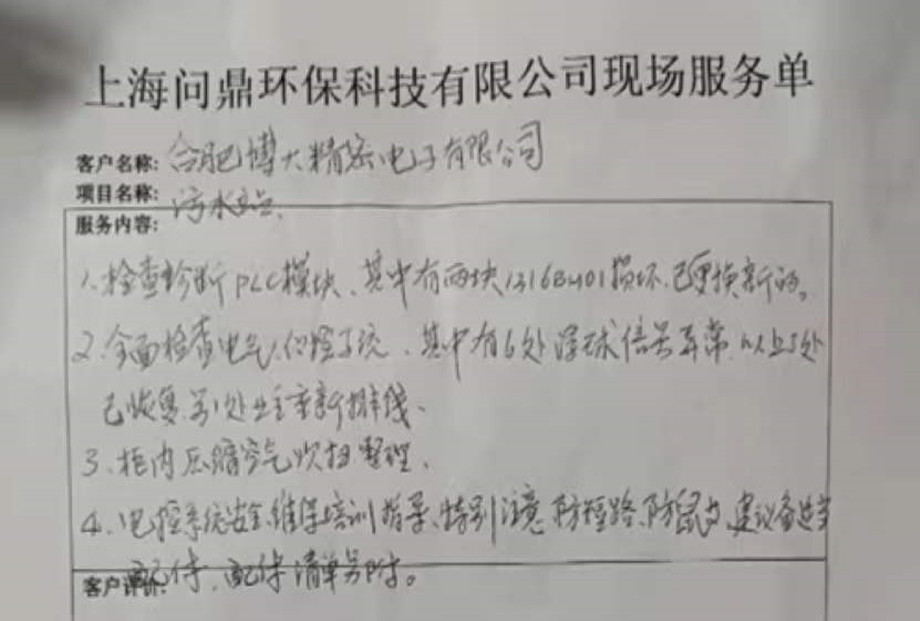 上海问鼎环保科技有限公司现场服务单
客户名称: 合肥博大精密电子有限公司
项目名称: 污水站
服务内容:
1、检查诊断PLC模块、其中有两块损坏已更换新的。
2、全面检查电气仪控系统、其中有6处浮球信号异常、以上5处
已恢复,另1处业主重新排线、
3、柜内压缩空气吹扫整理、
4、电控系统安全维保培训指导、特别注意防短路、防鼠患、建议备适当
配件、配件清单另附。
客户评价: